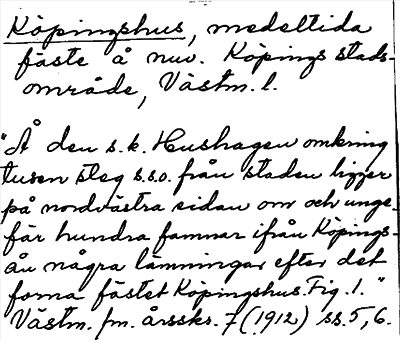 Köpingshus, medeltida
fäste å nuv. Köpings stads-
område, Västm. l.
"Å den s.k. Hushagen omkring
tusen steg s.s.o. från staden ligger
på nordvästra sidan om och unge-
fär hundra famnar ifrån Köpings-
ån några lämningar efter det
forna fästet Köpingshus. Fig. 1."
Västm. fm. årsskr. 7 (1912) ss. 5, 6.